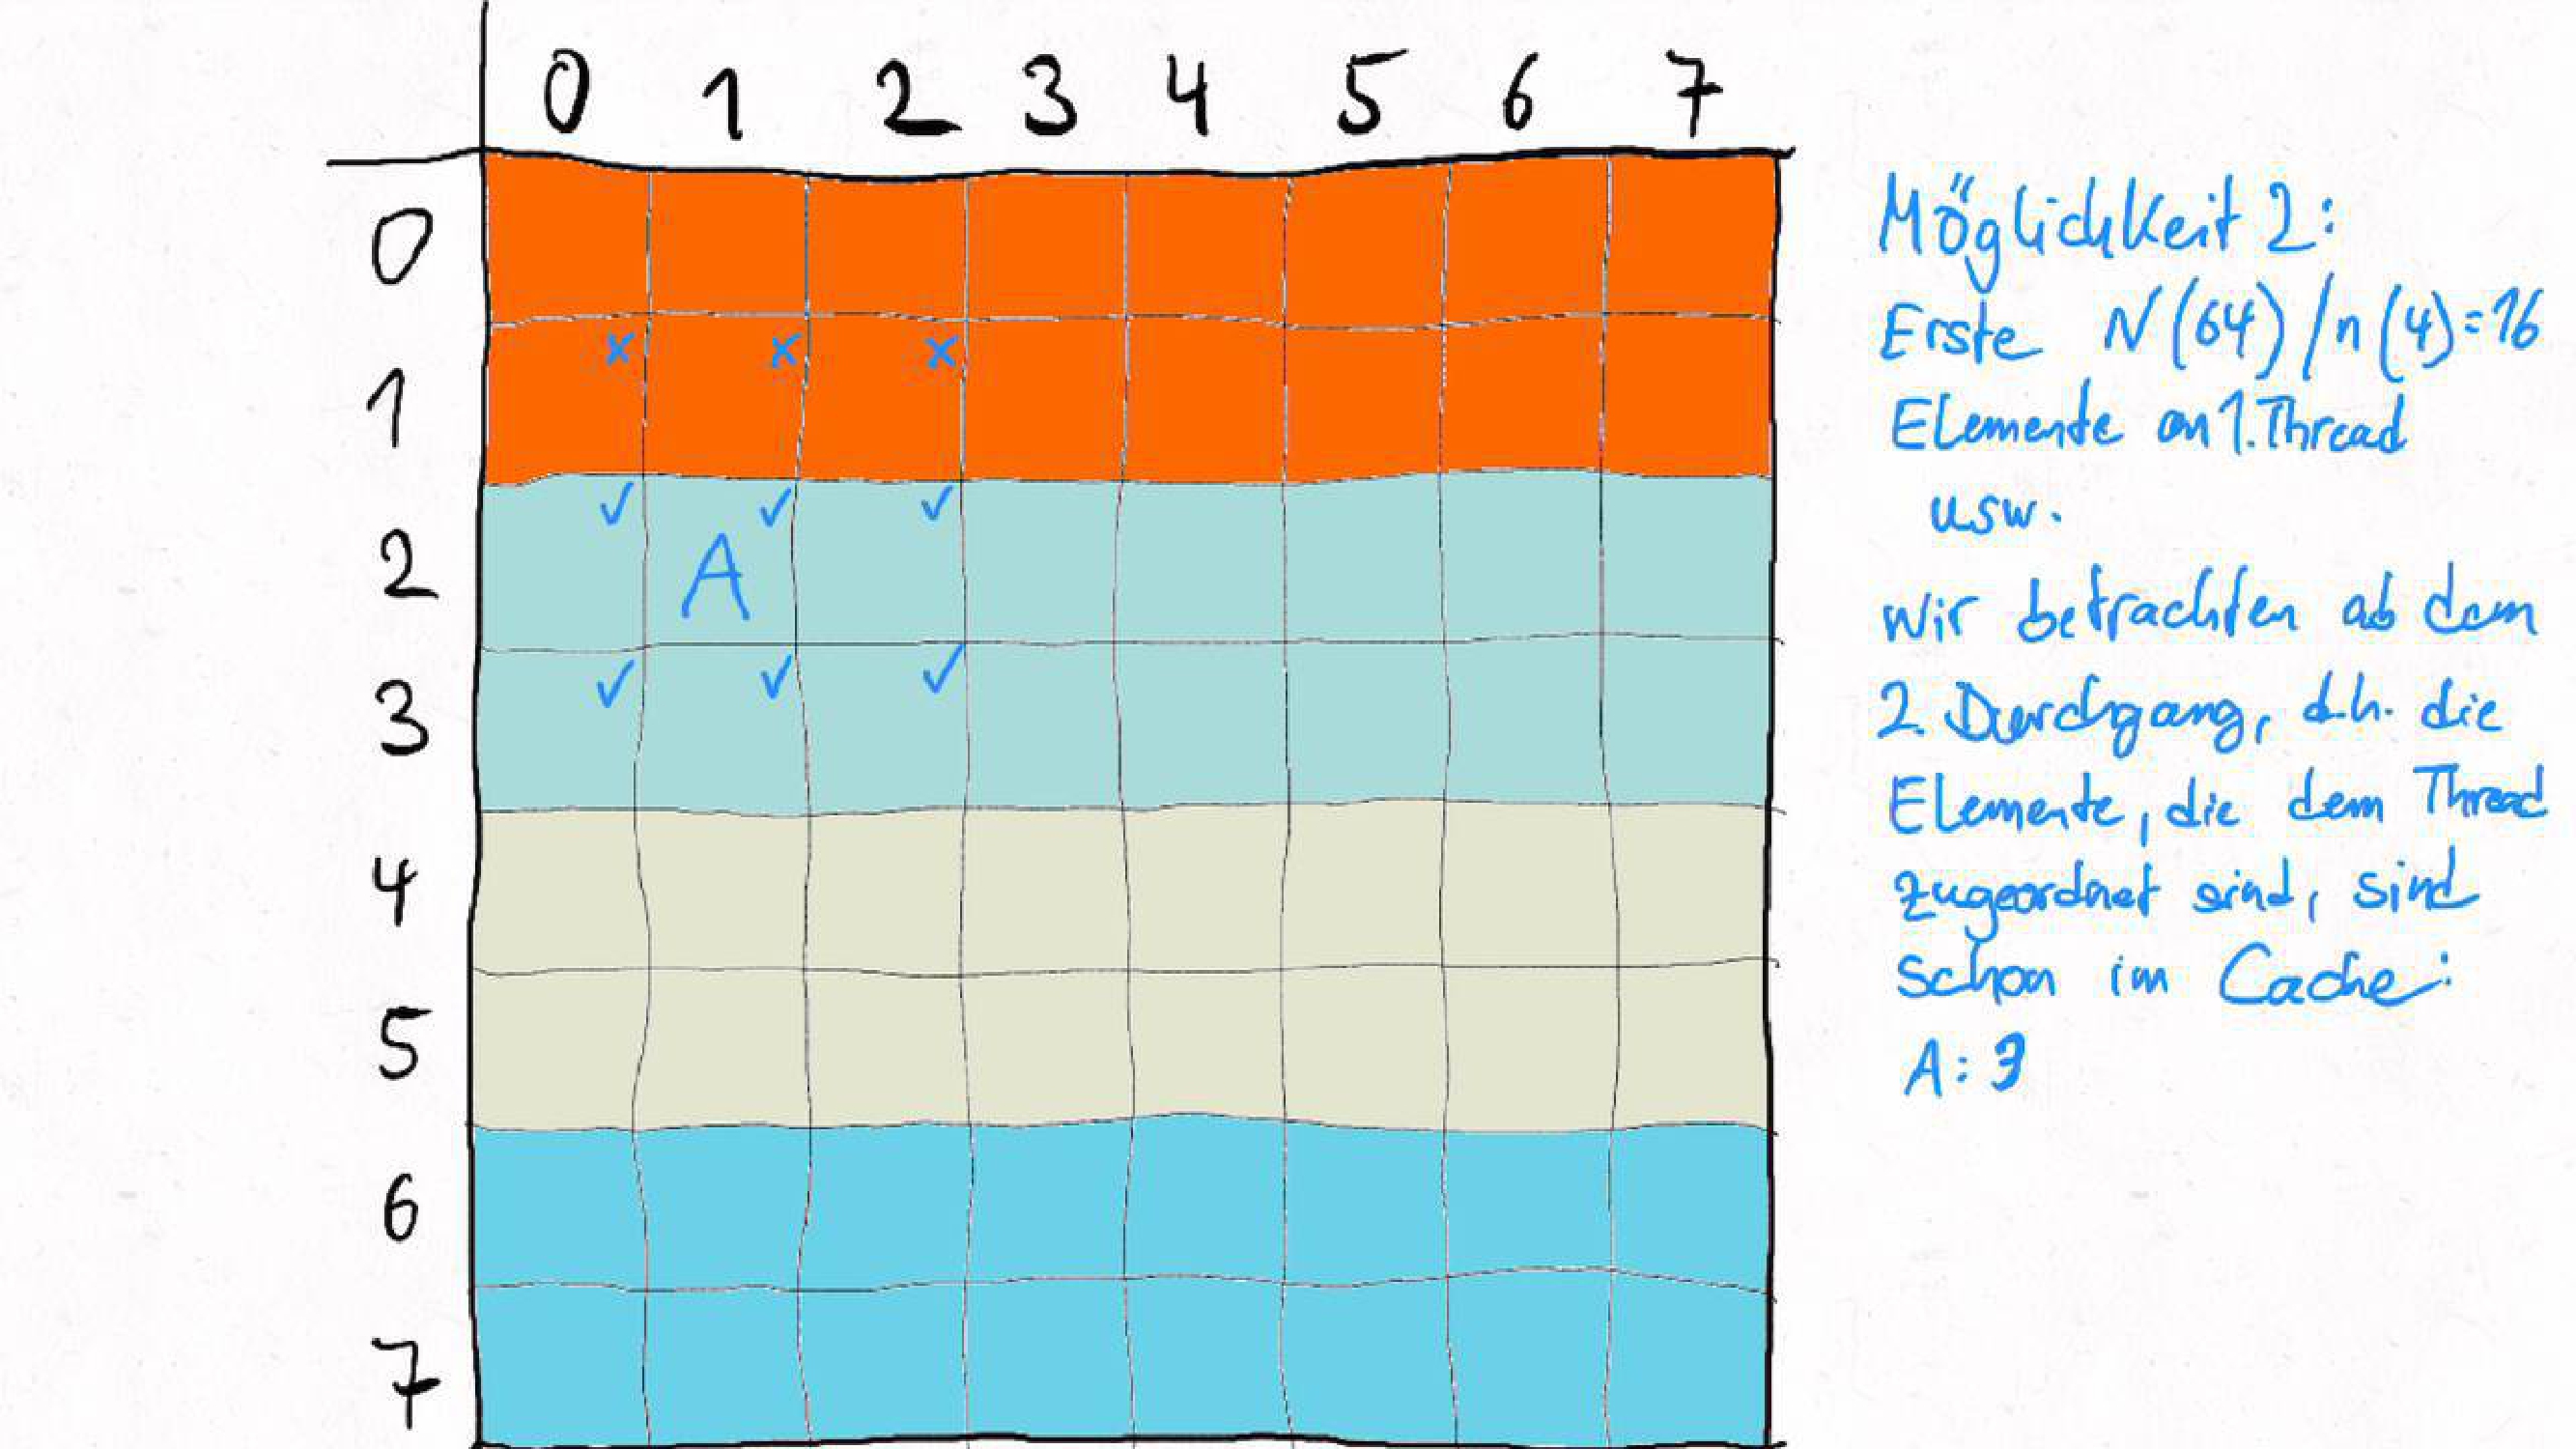 0 1 2 3 4 5 6 7
0
1
2
3
4
5
6
7
x x x
✓ ✓ ✓
A
✓ ✓ ✓
Möglichkeit 2:
Erste N(64)/n(4)=16
Elemente an 1. Thread
usw.
Wir betrachten ab dem
2. Durchgang, d.h. die
Elemente, die dem Thread
zugeordnet sind, sind
schon im Cache:
A: 3